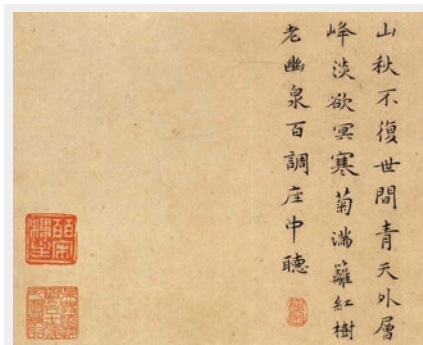 山秋不復世間青天外層
峰淡欲冥寒菊滿籬紅樹
老幽泉百調座中聽